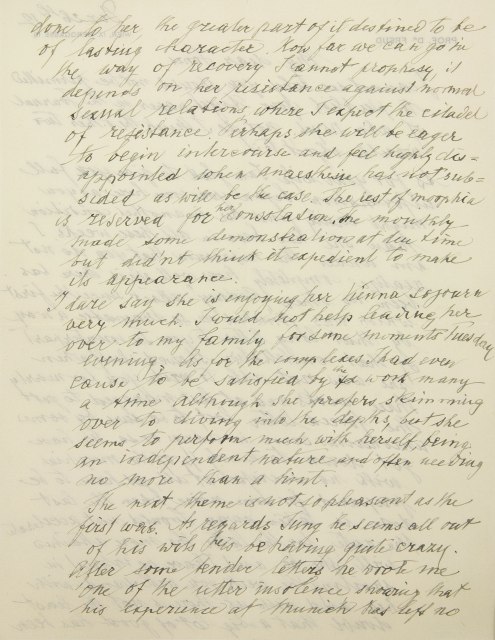 done to her, the greater part of it destined to be
of lasting character. How far we can go in
the way of recovery I cannot prophesy, it
depends on her resistance against normal
sexual relations where I expect the citadel
of resistance. Perhaps she will be eager
to begin intercourse and feel highly dis=
appointed when anaesthesie has not sub-
sided as will be the case. The rest of morphia
is reserved for her consolation. The monthly
made some demonstration at due time
but didn't think it expedient to make
its appearance.
I dare say she is enjoying her Vienna sojourn
very much. I could not help leaving her
over to my family for some moments Tuesday
evening. As for the complexes I had even
cause to be satisfied by the work many
a time although she prefers skimming
over to diving into the depths, but she
seems to perform much with herself, being
an independent nature and often needing
no more than a hint.
The next theme is not so pleasant as the
first was. As regards Jung he seems all out
of his wits, he is behaving quite crazy.
After some tender letters he wrote me
one of the utter insolence showing that
his experience at Munich has left no